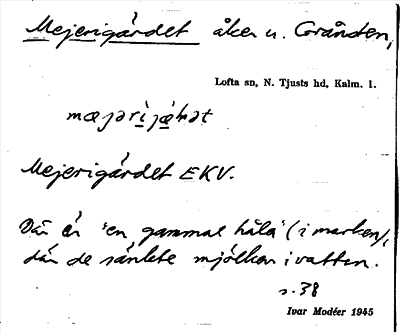 Mejerigärdet åker u. Gränden,
Lofta sn, N. Tjusts hd, Kalm. l.
Mejerigärdet EKV.
Där är "en gammal håla" (i marken),
där de sänkte mjölken i vatten.
s. 38
Ivar Modéer 1945